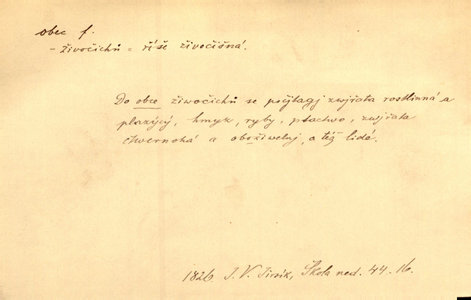 obec f.
- živočichů = říše živočišná.
Do obce žiwočichů se počjtagj zwjřata rostlinná a
plazýcý, hmyz, ryby, ptactwo, zwjřata
čtwernohá a obožiwelnj, a též lidé.
1826 J. V. Jirsík, Škola ned. 44. 16.